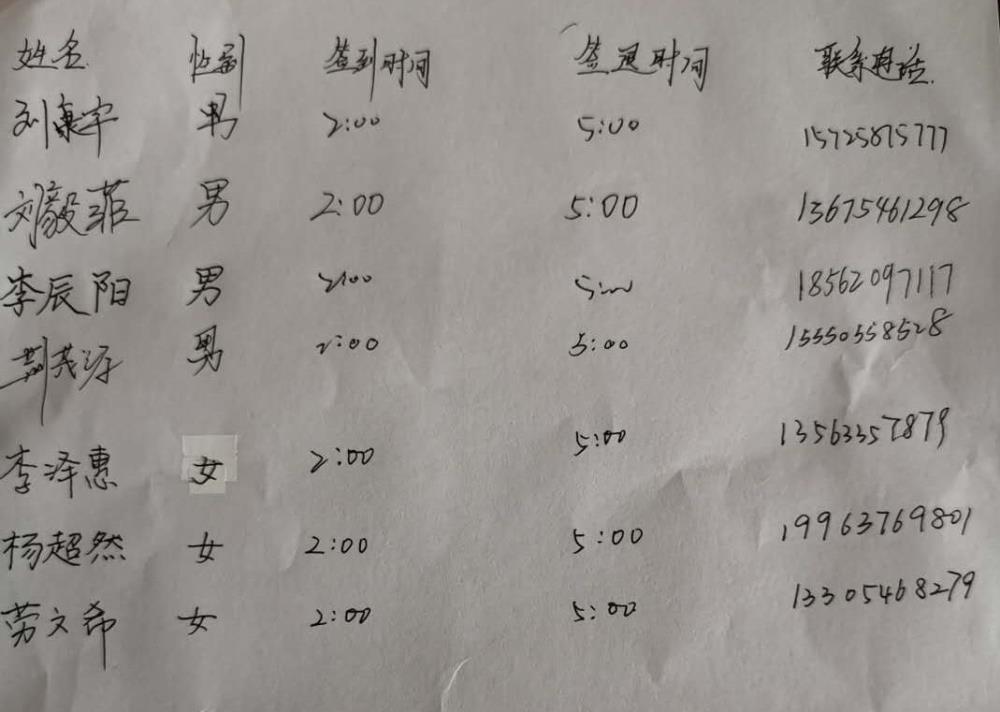 姓名 性别 签到时间 签退时间 联系电话
刘康宇 男 2:00 5:00 15725875777
刘毅菲 男 2:00 5:00 13675461298
李辰阳 男 2:00 5:00 18562097117
荆茂源 男 2:00 5:00 15550558528
李泽惠 女 2:00 5:00 13563357879
杨超然 女 2:00 5:00 19963769801
劳文希 女 2:00 5:00 13305468279